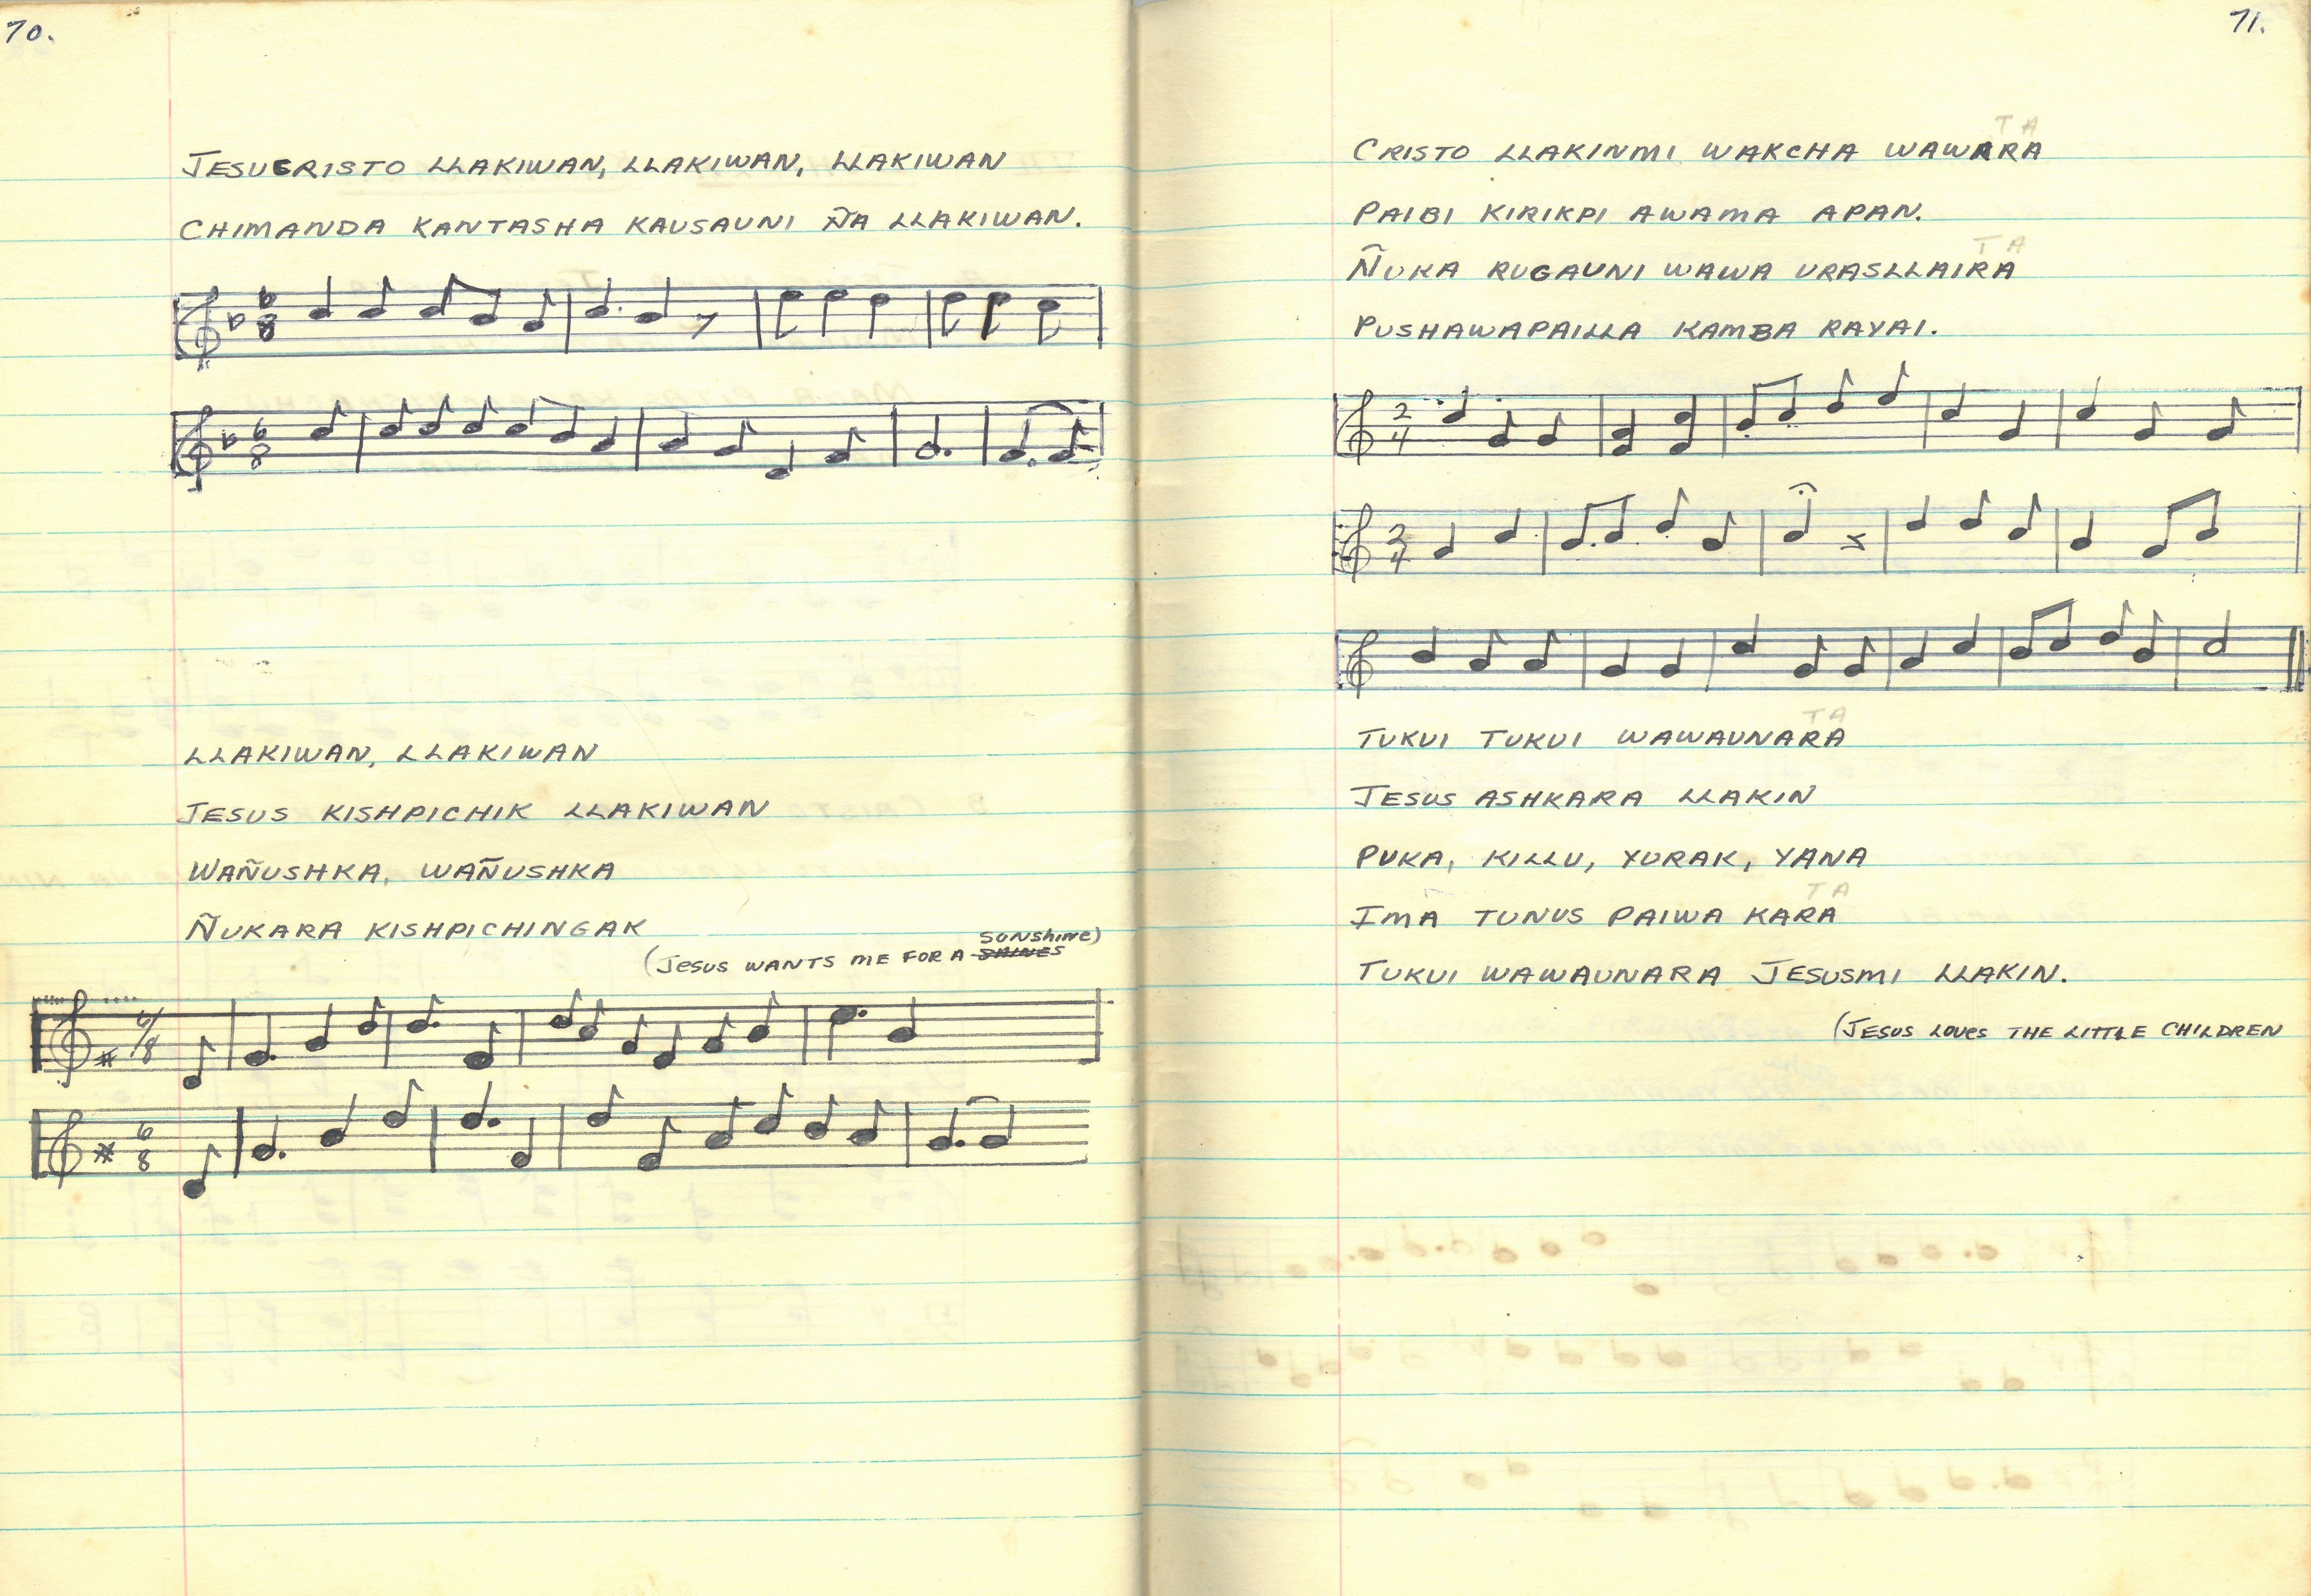 70.
JESUCRISTO LLAKIWAN, LLAKIWAN, LLAKIWAN
CHIMANDA KANTASHA KAUSAUNI ÑA LLAKIWAN.
6
8
6
8
LLAKIWAN, LLAKIWAN
JESUS KISHPICHIK LLAKIWAN
WAÑUSHKA, WAÑUSHKA
ÑUKARA KISHPICHINGAK
SUNSHINE)
(JESUS WANTS ME FOR A SHINES
6/8
6
8
71.
TA
CRISTO LLAKINMI WAKCHA WAWARA
PAIBI KIRIKPI AWAMA APAN.
TA
ÑUKA RUGAUNI WAWA URASLLAIRA
PUSHAWAPAILLA KAMBA RAYAI.
2
4
2
4
TA
TUKUI TUKUI WAWAUNARA
JESUS ASHKARA LLAKIN
PUKA, KILLU, YURAK, YANA
TA
IMA TUNUS PAIWA KARA
TUKUI WAWAUNARA JESUSMI LLAKIN.
(JESUS LOVES THE LITTLE CHILDREN